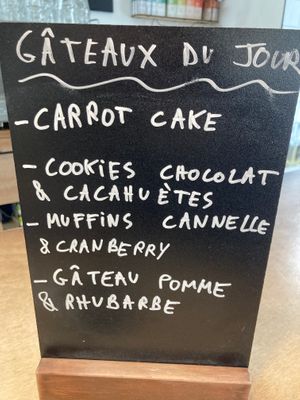 GÂTEAUX DU JOUR
- CARROT CAKE
- COOKIES CHOCOLAT
& CACAHUÈTES
- MUFFINS CANNELLE
& CRANBERRY
- GÂTEAU POMME
& RHUBARBE